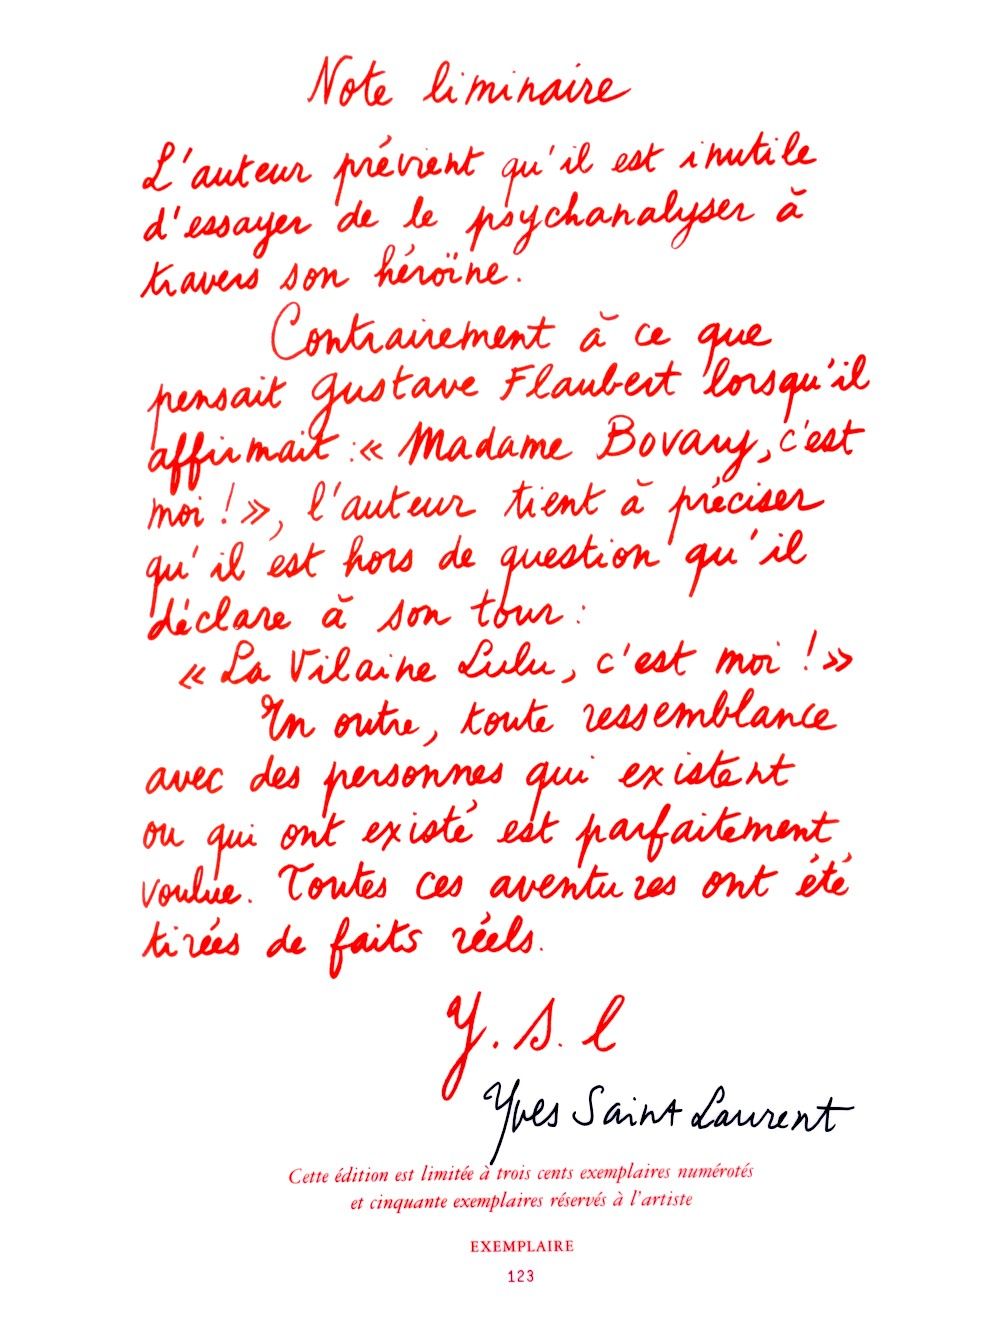 Note liminaire
L'auteur prévient qu'il est inutile
d'essayer de le psychanalyser à
travers son héroïne.
Contrairement à ce que
pensait Gustave Flaubert lorsqu'il
affirmait : « Madame Bovary, c'est
moi ! », l'auteur tient à préciser
qu'il est hors de question qu'il
déclare à son tour :
« La Vilaine Lulu, c'est moi ! »
En outre, toute ressemblance
avec des personnes qui existent
ou qui ont existé est parfaitement
voulue. Toutes ces aventures ont été
tirées de faits réels.
Y. S. L
Yves Saint Laurent
Cette édition est limitée à trois cents exemplaires numérotés
et cinquante exemplaires réservés à l'artiste
EXEMPLAIRE
123